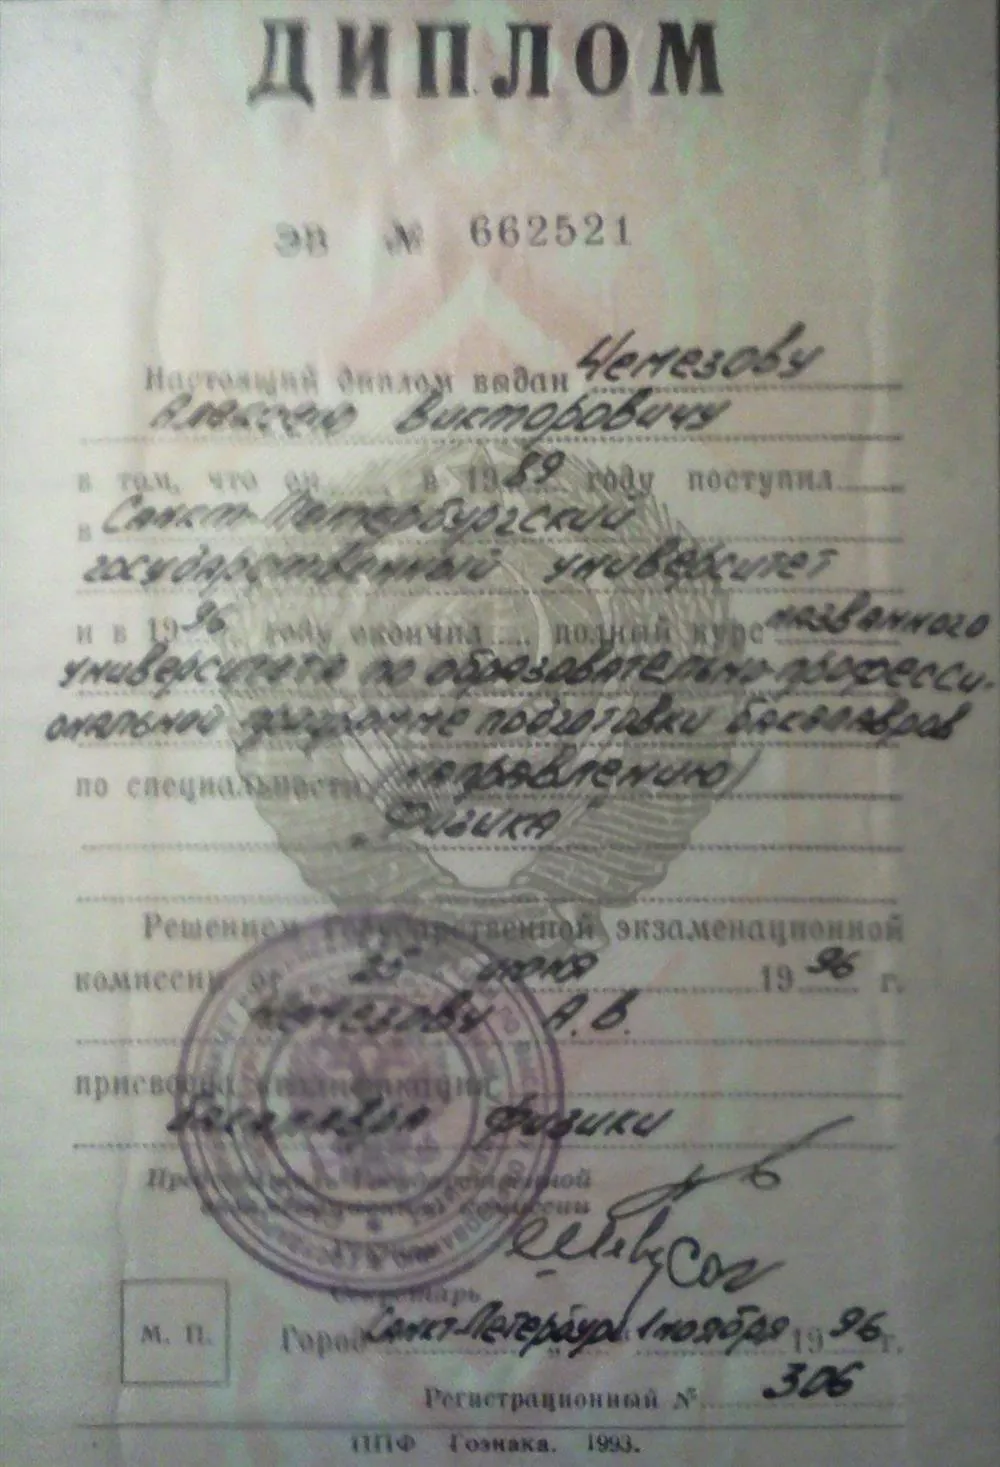 ДИПЛОМ
ЭВ № 662521
Настоящий диплом выдан Чемезову
Алексею Викторовичу
в том, что он в 1989 году поступил
в Санкт-Петербургский
государственный университет
и в 1996 году окончил полный курс названного
университета по образовательно-професси-
ональной программе подготовки бакалавров
по специальности направлению
"Физика"
Решением Государственной экзаменационной
комиссии от 25 июня 1996 г.
Чемезову А.В.
присвоена квалификация
бакалавра физики
Председатель Государственной
экзаменационной комиссии
Секретарь
М. П.
Город Санкт-Петербург 1 ноября 1996 г.
Регистрационный № 306
ППФ Гознака. 1993.